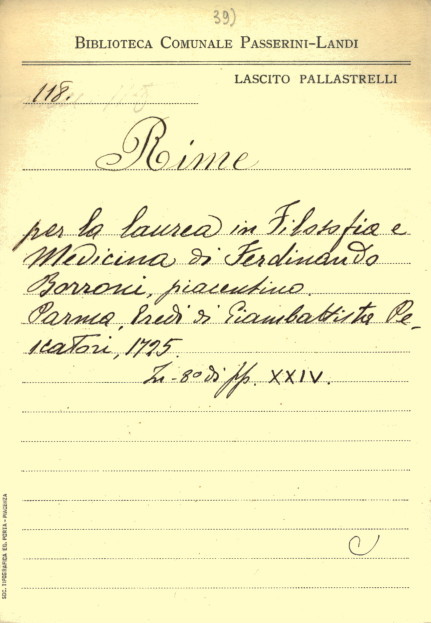 39)
BIBLIOTECA COMUNALE PASSERINI-LANDI
LASCITO PALLASTRELLI
118.
Rime
per la laurea in Filosofia e
Medicina di Ferdinando
Borroni, piacentino.
Parma, Eredi di Giambattista Pe-
scatori, 1725.
In-8º di pp. XXIV.
SOC. TIPOGRAFICA ED. PORTA - PIACENZA